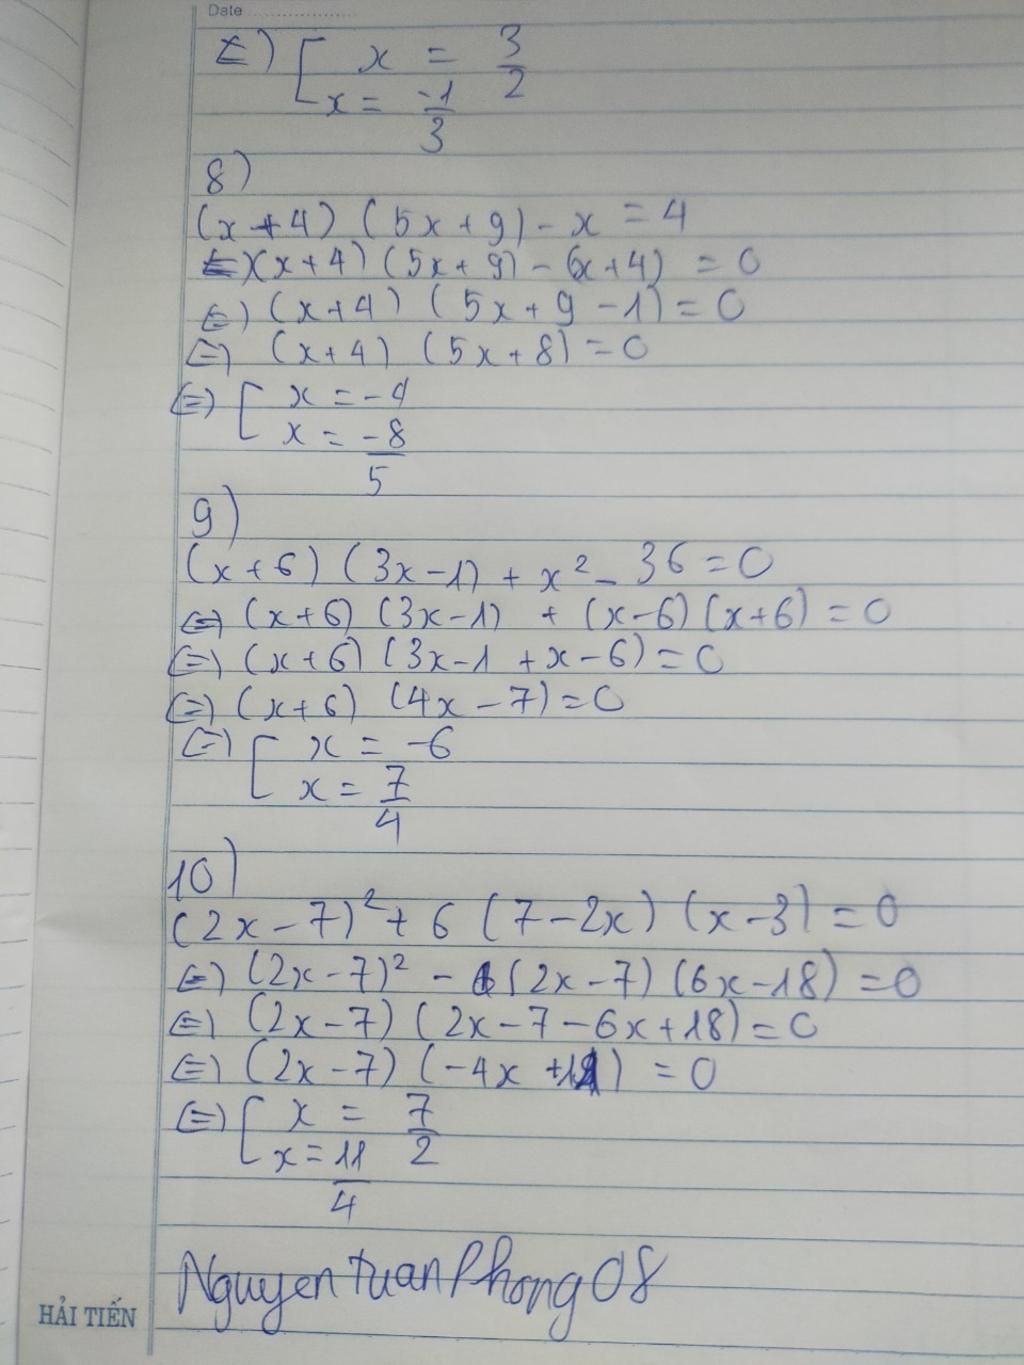 Date
⇔) [ x = 3/2
x = -1/3
8)
(x+4) (5x+9) - x = 4
⇔ (x+4) (5x+9) - (x+4) = 0
⇔ (x+4) (5x+9-1) = 0
⇔ (x+4) (5x+8) = 0
⇔ [ x = -4
x = -8/5
9)
(x+6) (3x-1) + x² - 36 = 0
⇔ (x+6) (3x-1) + (x-6) (x+6) = 0
⇔ (x+6) (3x-1 + x-6) = 0
⇔ (x+6) (4x-7) = 0
⇔ [ x = -6
x = 7/4
10)
(2x-7)² + 6 (7-2x) (x-3) = 0
⇔ (2x-7)² - (2x-7) (6x-18) = 0
⇔ (2x-7) (2x-7-6x+18) = 0
⇔ (2x-7) (-4x+11) = 0
⇔ [ x = 7/2
x = 11/4
NguyenTuanPhong08
HẢI TIẾN